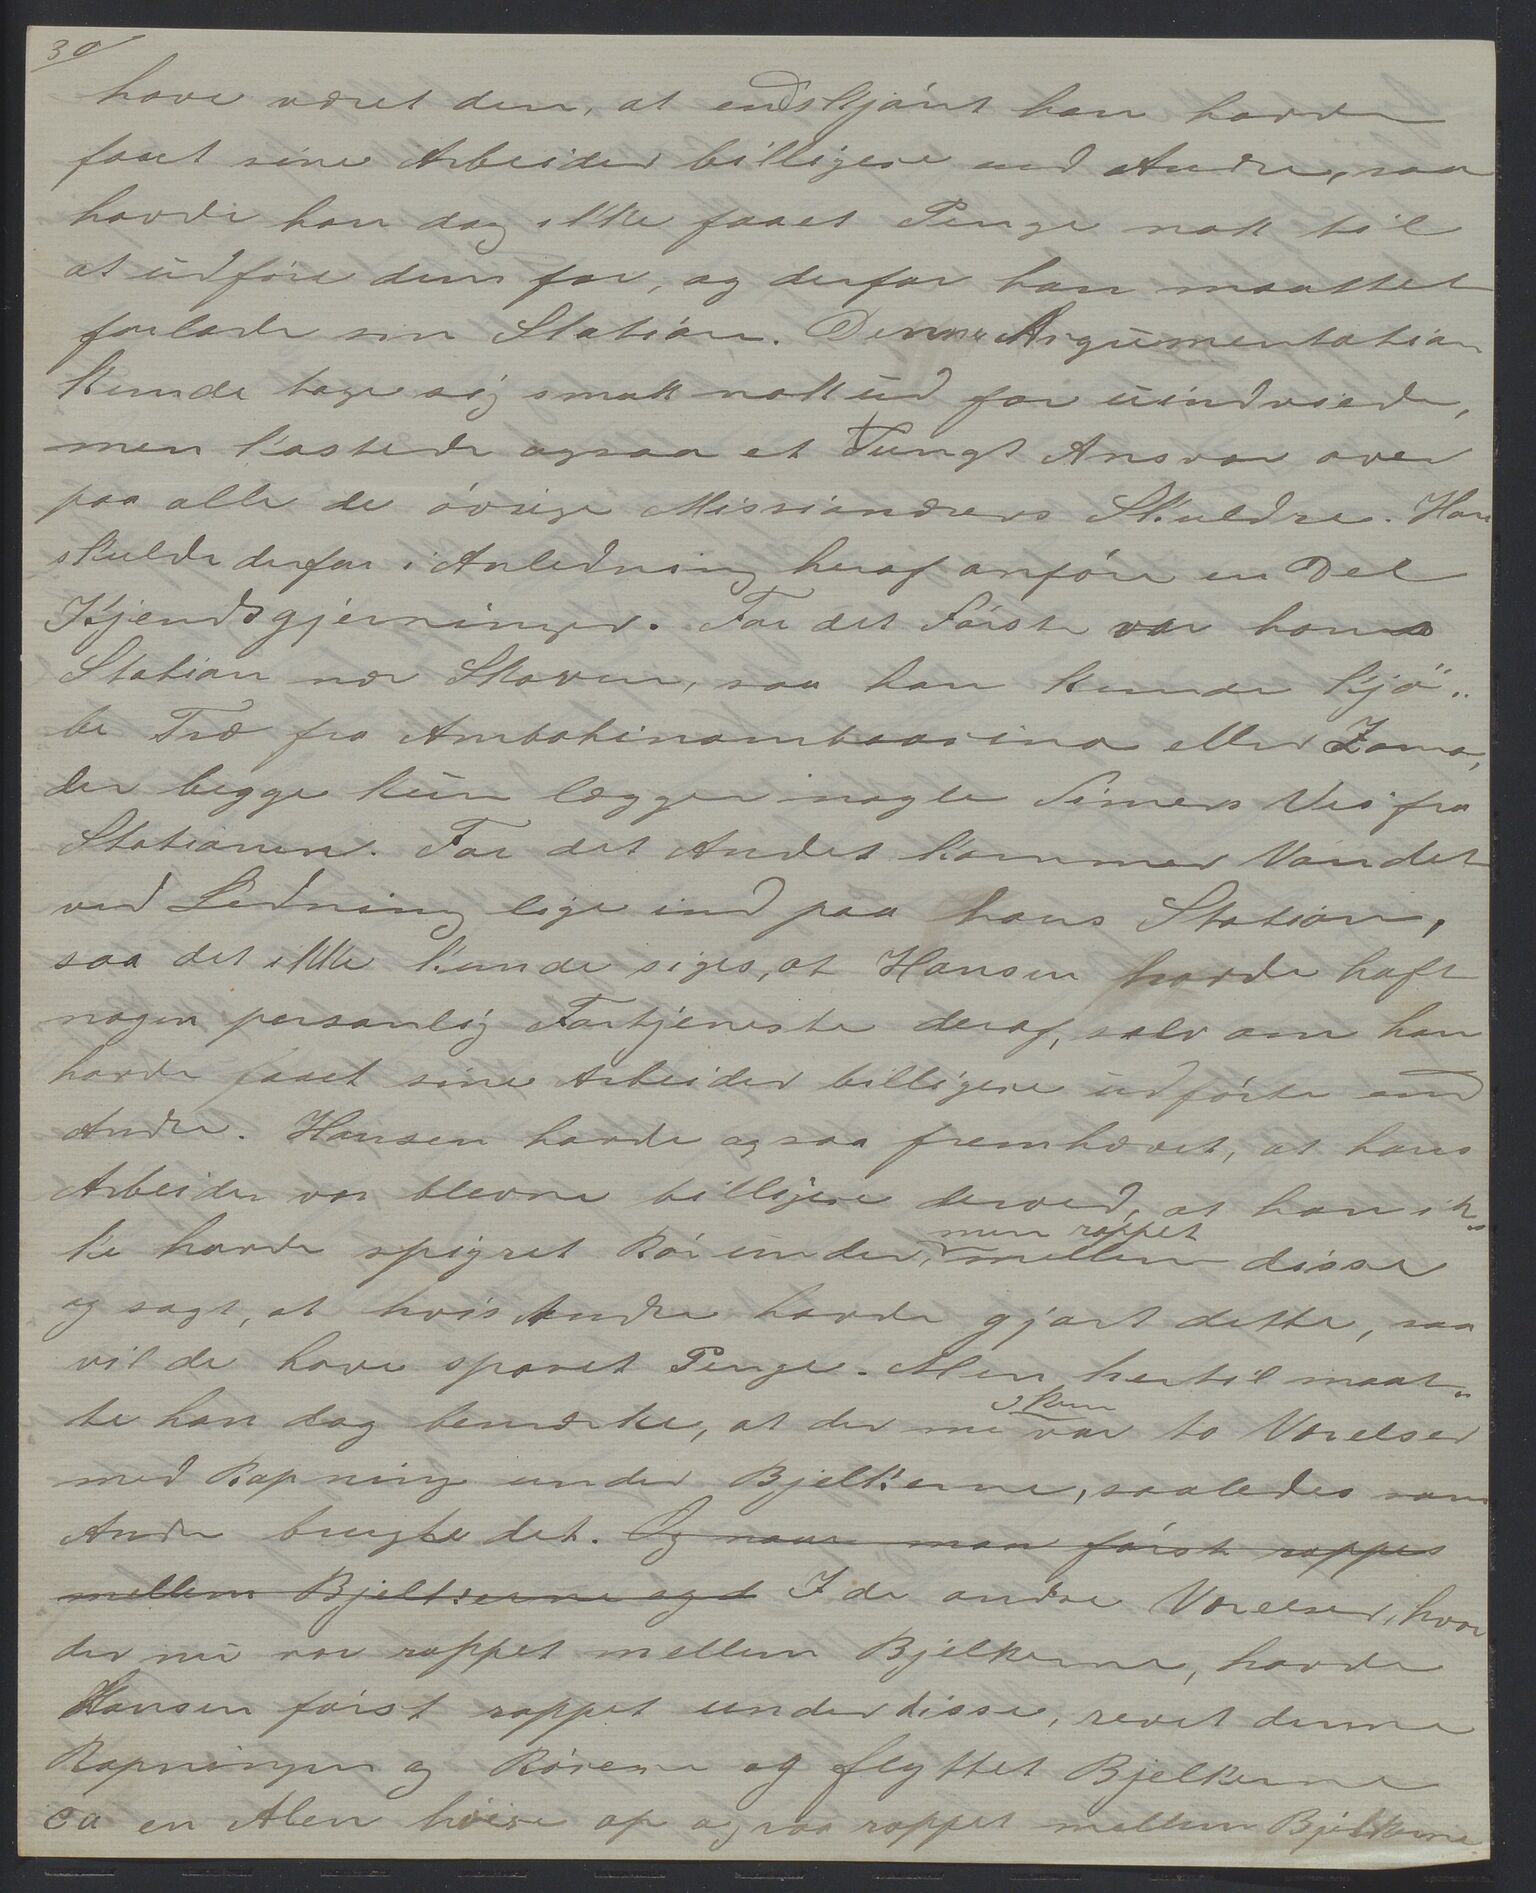 30/
have været den, at endskjönt han havde
faaet sine Arbeider billigere end Andre, saa
havde han dog ikke faaet Penge nok til
at udföre dem for, og derfor han maattet
forlade sin Station. Denne Argumentation
kunde tage sig smuk nok ud for uindviede,
men kastede ogsaa et tungt Ansvar over
paa alle de övrige Missionærers Skuldre. Han
skulde derfor i Anledning heraf anföre en Del
Kjendsgjerninger. For det Förste var hans
Station nær Skoven, saa han kunde kjö-
be Træ fra Ambohinamboarina eller Zoma,
der begge kun lægger nogle Timers Vei fra
Stationen. For det Andet kommer Vandet
ved Ledning lige ind paa hans Station,
saa det ikke kunde siges, at Hansen havde haft
nogen personlig Fortjeneste deraf, selv om han
havde faaet sine Arbeider billigere udförte end
Andre. Hansen havde ogsaa fremhævet, at hans
Arbeider var blevne billigere derved, at han ik-
ke havde spigret Rör under, men rappet mellem disse
og sagt, at hvis Andre havde gjort dette, saa
vil de have sparet Penge. Men hertil maat-
te han dog bemærke, at der nu kun var to Værelser
med Rapning under Bjelkerne, saaledes som
Andre brugte det. Og naar man först rappes
mellem Bjelkerne og d I de andre Værelser, hvor
der nu var rappet mellem Bjelkerne, havde
Hansen först rappet under disse, revet denne
Rapningen og Rörene og flyttet Bjelkerne
ca en Alen höiere op og saa rappet mellem Bjelkerne